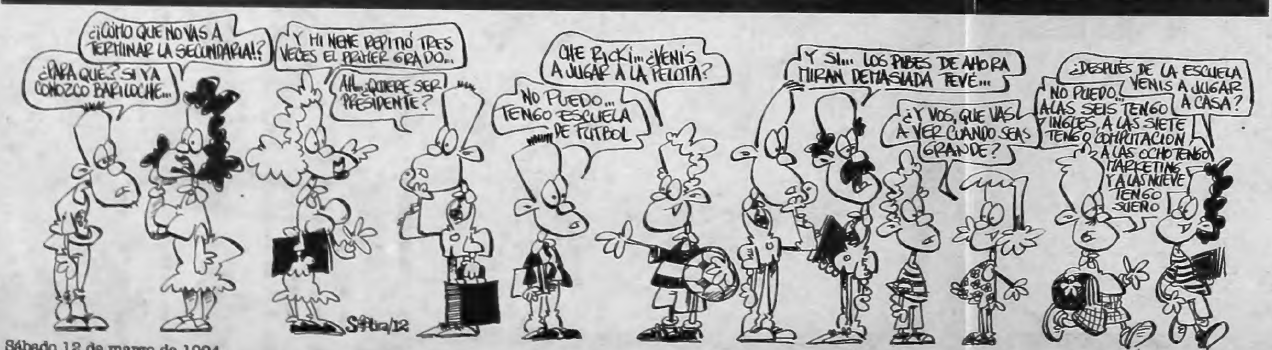 ¿¡CÓMO QUE NO VAS A
TERMINAR LA SECUNDARIA!?
¿PARA QUÉ? SI YA
CONOZCO BARILOCHE...
Y MI NENE REPITIÓ TRES
VECES EL PRIMER GRADO...
AH... ¿QUIERE SER
PRESIDENTE?
CHE RICKI... ¿VENÍS
A JUGAR A LA PELOTA?
NO PUEDO...
TENGO ESCUELA
DE FUTBOL
Y SI... LOS PIBES DE AHORA
MIRAN DEMASIADA TEVÉ...
¿Y VOS, QUE VAS
A VER CUANDO SEAS
GRANDE?
¿DESPUÉS DE LA ESCUELA
VENIS A JUGAR
A CASA?
NO PUEDO...
A LAS SEIS TENGO
INGLES, A LAS SIETE
TENGO COMPUTACION
A LAS OCHO TENGO
MARKETING
Y A LAS NUEVE
TENGO
SUEÑO
Sábado 12 de marzo de 1994